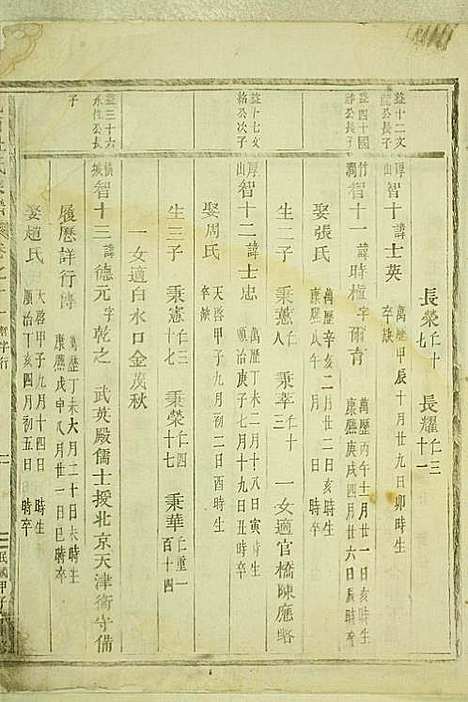 長榮仁十七 長耀仁三十一
益十二文山公長子
厚山 智十 諱士英 萬歷甲辰十月廿九日卯時生 卒缺
益四十國公長子
竹澗 智十一 諱時權 字爾育 萬歷丙午十二月廿一日亥時生 康熙庚戌四月廿六日亥時卒
娶張氏 萬歷辛亥二月廿二日亥時生 康熙戊午
生二子 秉憲 秉莘 一女適官橋陳應略
益十七文公次子
厚山 智十二 諱士忠 萬歷丁未二月十八日寅時生 順治庚子七月十九日丑時卒
娶周氏 天啓甲子九月初二日酉時生 卒缺
生三子 秉憲仁十七 秉榮仁四十七 秉華仁重一百十四
一女適白水口金茂秋
益三十六永仕公長子
橫城 智十三 諱德元 字乾之 武英殿儒士授北京天津衛守備
履歷詳行傳 萬歷丁未六月二十日未時生 康熙戊申八月廿一日巳時卒
娶趙氏 天啓甲子九月十四日 時生 順治丁亥四月初五日 時卒
民國甲子